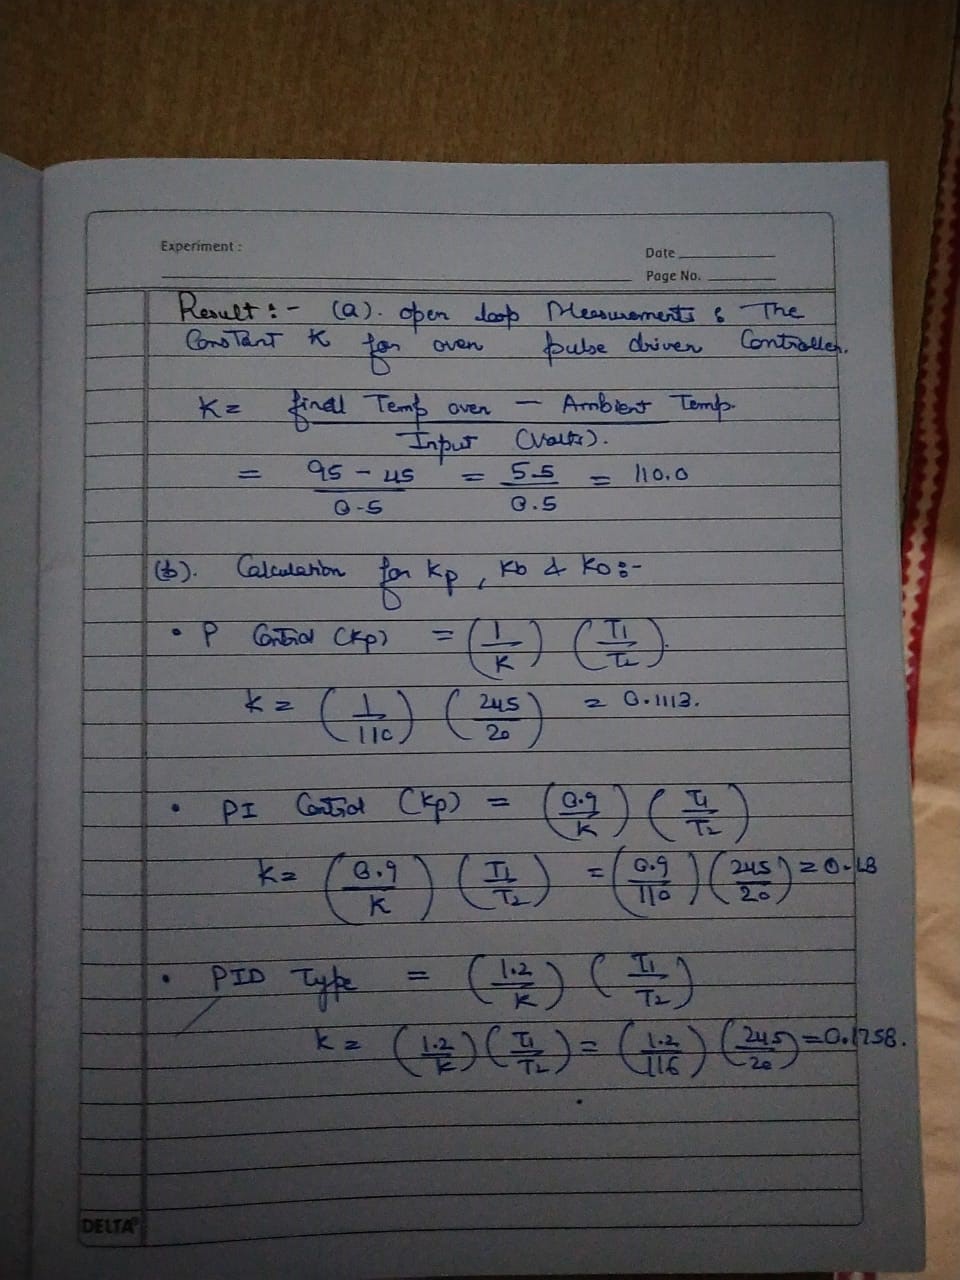 Experiment :
Date
Page No.
Result :- (a). open loop Measurements : The
Constant K for oven pulse driver Controller.
K = final Temp oven - Ambient Temp.
Input (Volts).
= 95 - 45 / 0.5 = 5.5 / 0.5 = 110.0
(b). Calculation for Kp, KD & KD :-
• P Control (Kp) = (1/K) (T1/T2).
K = (1/110) (245/20) = 0.1113.
• PI Control (Kp) = (0.9/K) (T1/T2)
K = (0.9/K) (T1/T2) = (0.9/110) (245/20) = 0.
• PID Type = (1.2/K) (T1/T2)
K = (1.2/K) (T1/T2) = (1.2/116) (245/20) = 0.1258.
DELTA®